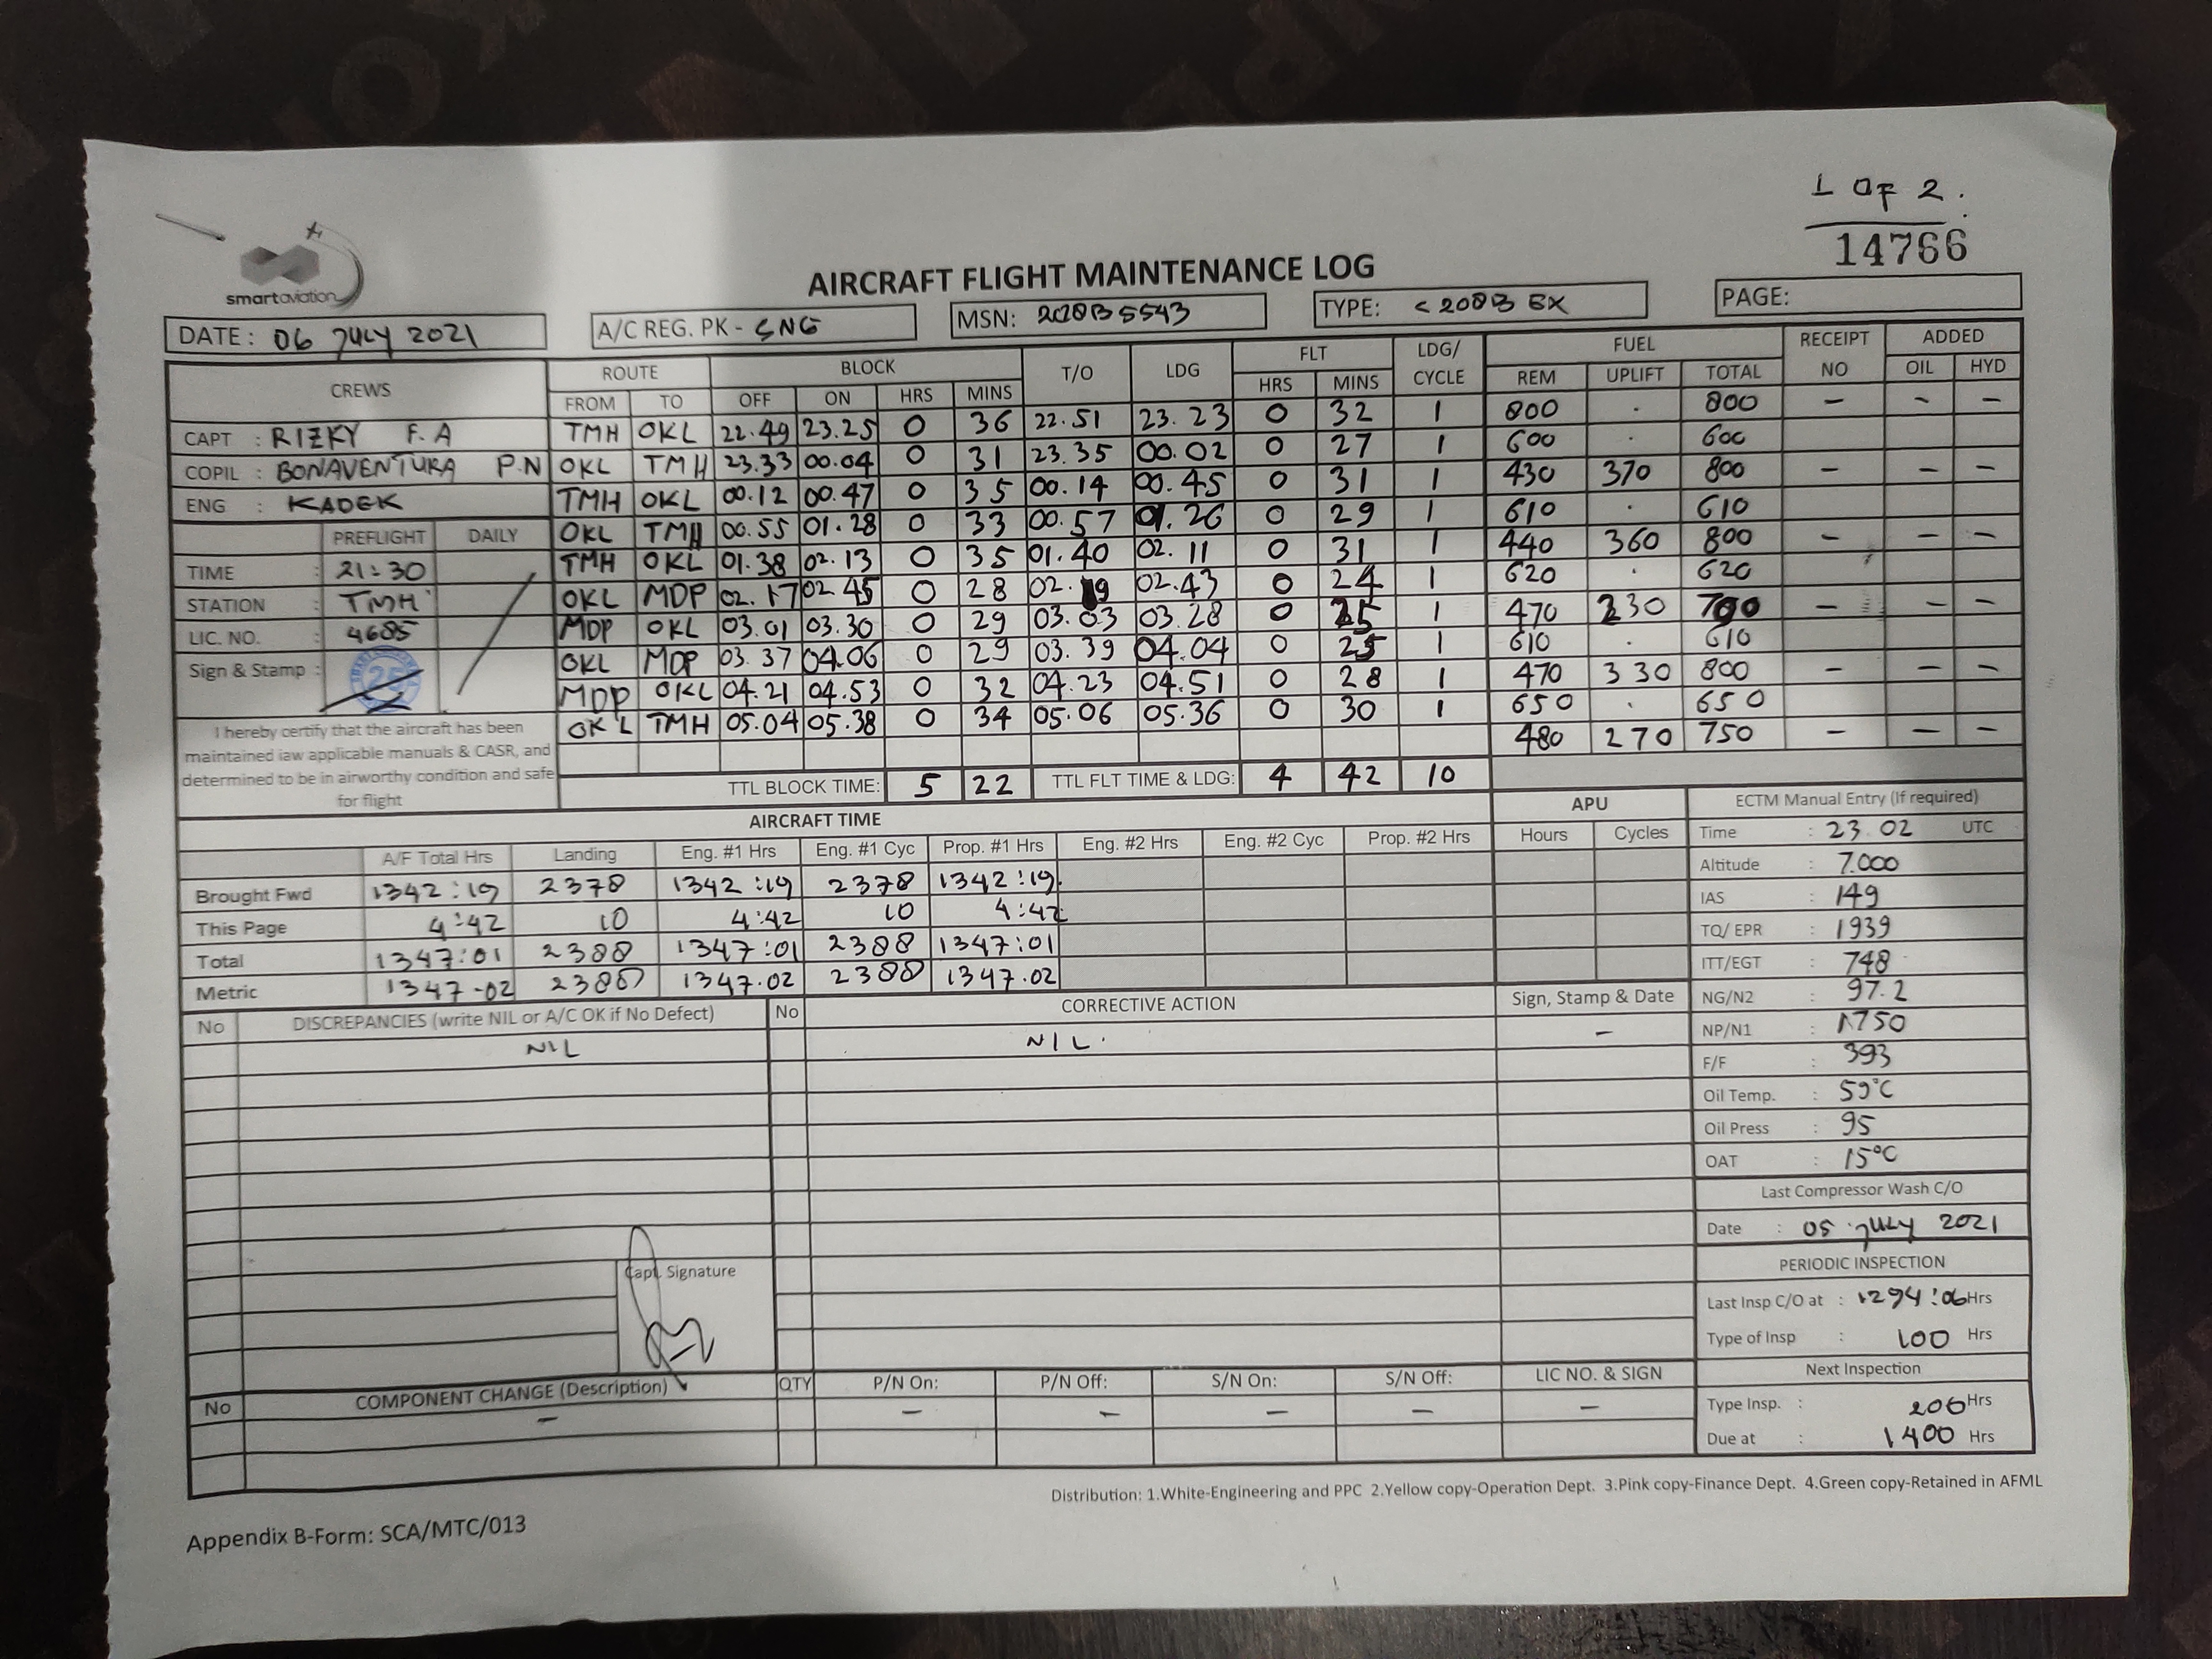 1 OF 2.
14766
smartaviation
AIRCRAFT FLIGHT MAINTENANCE LOG
DATE : 06 JULY 2021 A/C REG. PK - SNG MSN: 208B5543 TYPE: C208B EX PAGE:
CREWS ROUTE BLOCK T/O LDG FLT LDG/ CYCLE FUEL RECEIPT NO ADDED
FROM TO OFF ON HRS MINS HRS MINS REM UPLIFT TOTAL OIL HYD
CAPT : RIZKY F.A TMH OKL 22.49 23.25 0 36 22.51 23.23 0 32 1 800 . 800 - - -
COPIL : BONAVENTURA P.N OKL TMH 23.33 00.04 0 31 23.35 00.02 0 27 1 600 . 600
ENG : KADEK TMH OKL 00.12 00.47 0 35 00.14 00.45 0 31 1 430 370 800 - - -
PREFLIGHT DAILY OKL TMH 00.55 01.28 0 33 00.57 01.26 0 29 1 610 . 610
TIME : 21:30 TMH OKL 01.38 02.13 0 35 01.40 02.11 0 31 1 440 360 800 - - -
STATION : TMH OKL MDP 02.17 02.45 0 28 02.19 02.43 0 24 1 620 . 620
LIC. NO. : 4685 MDP OKL 03.01 03.30 0 29 03.03 03.28 0 25 1 470 230 700 - - -
Sign & Stamp : OKL MDP 03.37 04.06 0 29 03.39 04.04 0 25 1 610 . 610
MDP OKL 04.21 04.53 0 32 04.23 04.51 0 28 1 470 330 800 - - -
OKL TMH 05.04 05.38 0 34 05.06 05.36 0 30 1 650 . 650
480 270 750 - - -
I hereby certify that the aircraft has been
maintained iaw applicable manuals & CASR, and
determined to be in airworthy condition and safe
for flight
TTL BLOCK TIME: 5 22 TTL FLT TIME & LDG: 4 42 10
AIRCRAFT TIME APU ECTM Manual Entry (If required)
A/F Total Hrs Landing Eng. #1 Hrs Eng. #1 Cyc Prop. #1 Hrs Eng. #2 Hrs Eng. #2 Cyc Prop. #2 Hrs Hours Cycles
Brought Fwd 1342:19 2378 1342:19 2378 1342:19
This Page 4:42 10 4:42 10 4:42
Total 1347:01 2388 1347:01 2388 1347:01
Metric 1347.02 2388 1347.02 2388 1347.02
Time : 23.02 UTC
Altitude : 7.000
IAS : 149
TQ/ EPR : 1939
ITT/EGT : 748
NG/N2 : 97.2
NP/N1 : 1750
F/F : 393
Oil Temp. : 59°C
Oil Press : 95
OAT : 15°C
No DISCREPANCIES (write NIL or A/C OK if No Defect) No CORRECTIVE ACTION Sign, Stamp & Date
NIL NIL. -
Last Compressor Wash C/O
Date : 05 JULY 2021
PERIODIC INSPECTION
Last Insp C/O at : 1294:06 Hrs
Type of Insp : 100 Hrs
Next Inspection
Type Insp. : 206 Hrs
Due at : 1400 Hrs
Capt. Signature
No COMPONENT CHANGE (Description) QTY P/N On: P/N Off: S/N On: S/N Off: LIC NO. & SIGN
- - - - - -
Distribution: 1.White-Engineering and PPC 2.Yellow copy-Operation Dept. 3.Pink copy-Finance Dept. 4.Green copy-Retained in AFML
Appendix B-Form: SCA/MTC/013